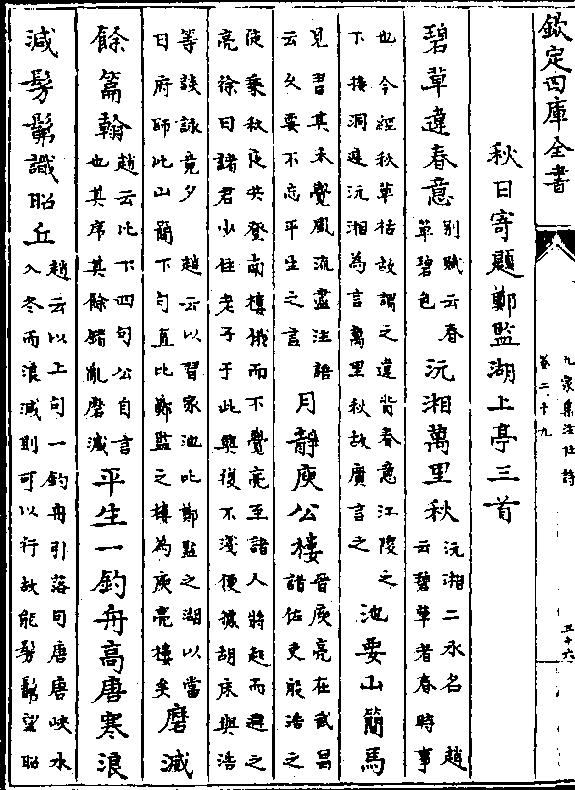 欽定四庫全書
九家集注杜詩
卷二十九
五十六
秋日寄題鄭監湖上亭三首
碧草違春意
別賦云春
草碧色
沅湘萬里秋
沅湘二水名趙
云碧草者春時事
也今經秋草枯故謂之違背春意江陵之
下接洞庭沅湘為言萬里秋故廣言之
池要山簡馬
見習其未覺風流盡注語
云久要不忘平生之言
月靜庾公樓
晉庾亮在武昌
諸佐吏殷浩之
徒乗秋夜共登南樓俄而不覺亮至諸人將起而避之
亮徐曰諸君少住老子于此興復不淺便據胡床與浩
等談詠竟夕趙云以習家池比鄭監之湖以當
日府師比山簡下句直比鄭監之樓為庾亮樓矣
磨滅
餘篇翰
趙云比下四句公自言
也其序其餘錯亂磨滅
平生一釣舟高唐寒浪
減髣髴識昭丘
趙云以上句一釣舟引落句唐唐峽水
入冬而浪減則可以行故能髣髴望昭